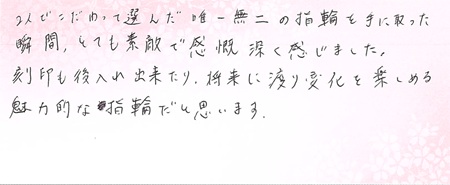 2人でこだわって選んだ唯一無二の指輪を手に取った
瞬間、とても素敵で感慨深く感じました。
刻印も後入れ出来たり、将来に渡り変化を楽しめる
魅力的な指輪だと思います。